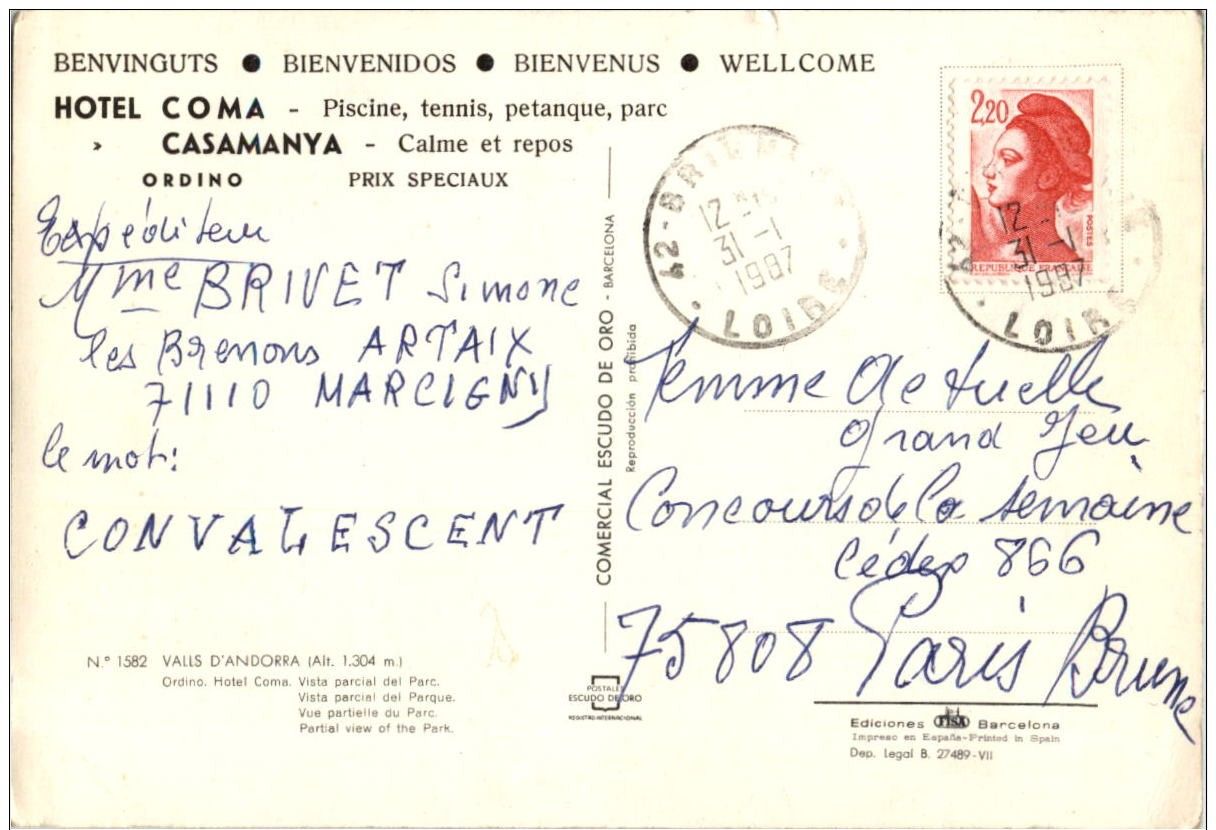 BENVINGUTS ● BIENVENIDOS ● BIENVENUS ● WELLCOME
HOTEL COMA - Piscine, tennis, petanque, parc
» CASAMANYA - Calme et repos
ORDINO PRIX SPECIAUX
Expéditeur
Mme BRIVET Simone
les Brenons ARTAIX
71110 MARCIGNY
le mot:
CONVALESCENT
N.º 1582 VALLS D'ANDORRA (Alt. 1.304 m.)
Ordino. Hotel Coma. Vista parcial del Parc.
Vista parcial del Parque.
Vue partielle du Parc.
Partial view of the Park.
COMERCIAL ESCUDO DE ORO - BARCELONA
Reproducción prohibida
POSTALES
ESCUDO DE ORO
REGISTRO INTERNACIONAL
2,20
POSTES
REPUBLIQUE FRANÇAISE
42-
12
31-1
1987
LOIRE
12
31-1
1987
LOIRE
Femme Actuelle
Grand Jeu
Concours de la semaine
Cédex 866
75808 Paris Brune
Ediciones FISA Barcelona
Impreso en España-Printed in Spain
Dep. Legal B. 27489-VII